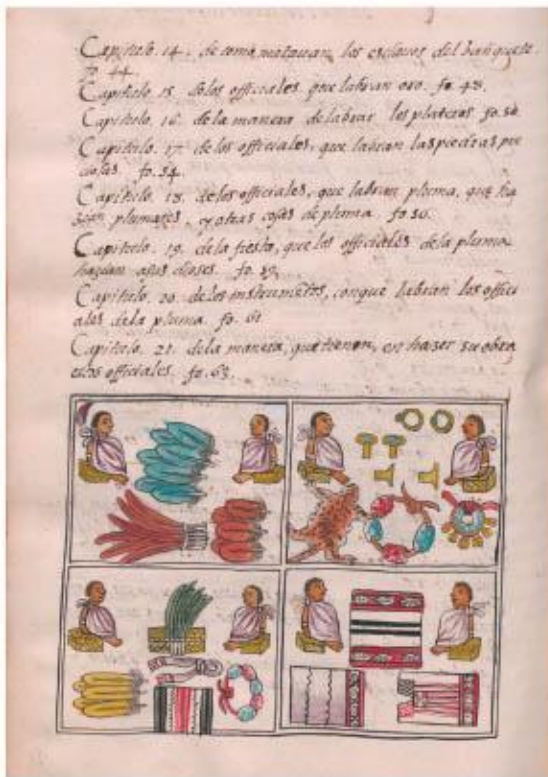 Capitulo. 14. de como matauan los esclauos del banquete.
fo. 44.
Capitulo. 15. de los officiales que labran oro. fo. 48.
Capitulo. 16. de la manera de labrar los plateros fo. 50.
Capitulo. 17. de los officiales, que labran las piedras pre
ciosas. fo. 54.
Capitulo. 18. de los officiales, que labran pluma, que ha
zean plumajes, y otras cosas de pluma. fo 56.
Capitulo. 19. de la fiesta, que los officiales de la pluma
hazian a sus dioses. fo. 59.
Capitulo. 20. de los instrumētos, conque labran los offici
ales de la pluma. fo. 61
Capitulo. 21. de la manera, que tienen, en hazer su obra
estos officiales. fo. 63.